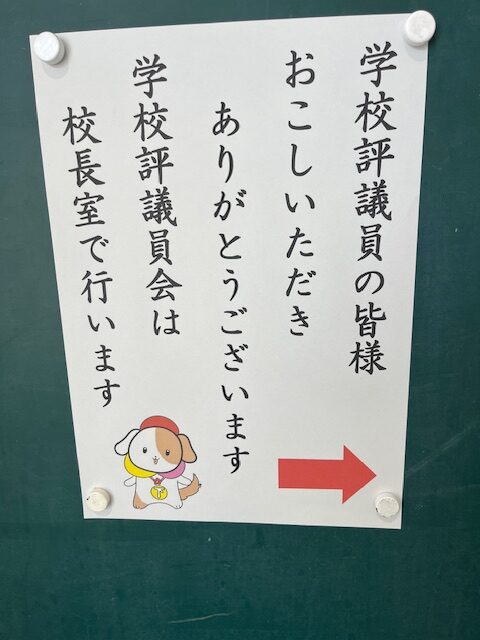 学校評議員の皆様
おこしいただき
ありがとうございます
学校評議員会は
校長室で行います